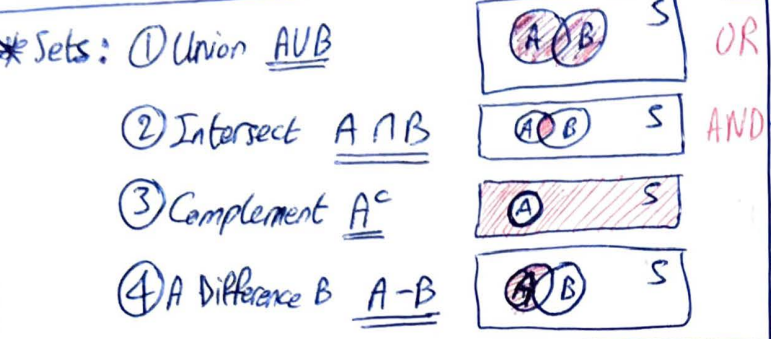 * Sets: ① Union A∪B A B S OR
② Intersect A∩B A B S AND
③ Complement Aᶜ A S
④ A Difference B A-B A B S